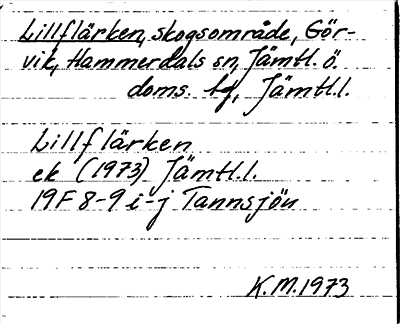 Lillflärken, skogsområde, Gör-
vik, Hammerdals sn, Jämtl. ö.
doms. tg, Jämtl.l.
Lillflärken
ek (1973) Jämtl.l.
19F 8-9 i-j Tannsjön
K.M.1973